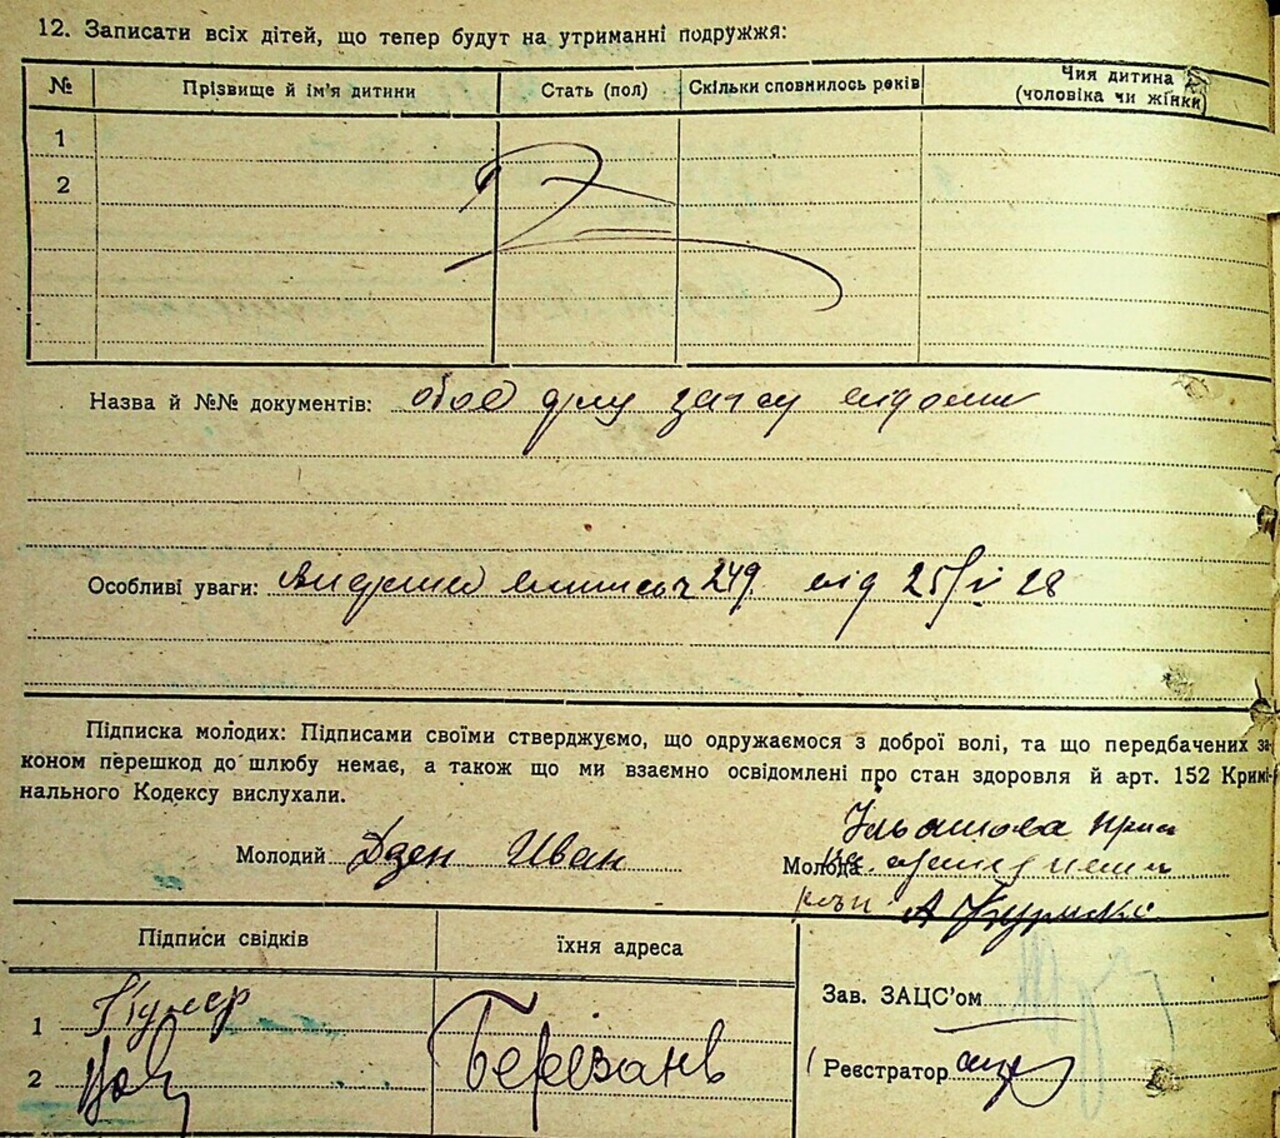 12. Записати всіх дітей, що тепер будут на утриманні подружжя:
№ Прізвище й ім'я дитини Стать (пол) Скільки сповнилось років Чия дитина
(чоловіка чи жінки)
1
2
Назва й №№ документів: обоє загсу відомі
Особливі уваги: 249. від 25/ 28
Підписка молодих: Підписами своїми стверджуємо, що одружаємося з доброї волі, та що передбачених за-
коном перешкод до шлюбу немає, а також що ми взаємно освідомлені про стан здоровля й арт. 152 Кримі-
нального Кодексу вислухали.
Молодий Дзен Иван
Молода
Підписи свідків їхня адреса
Зав. ЗАЦС'ом
1
2 Березань
Реєстратор